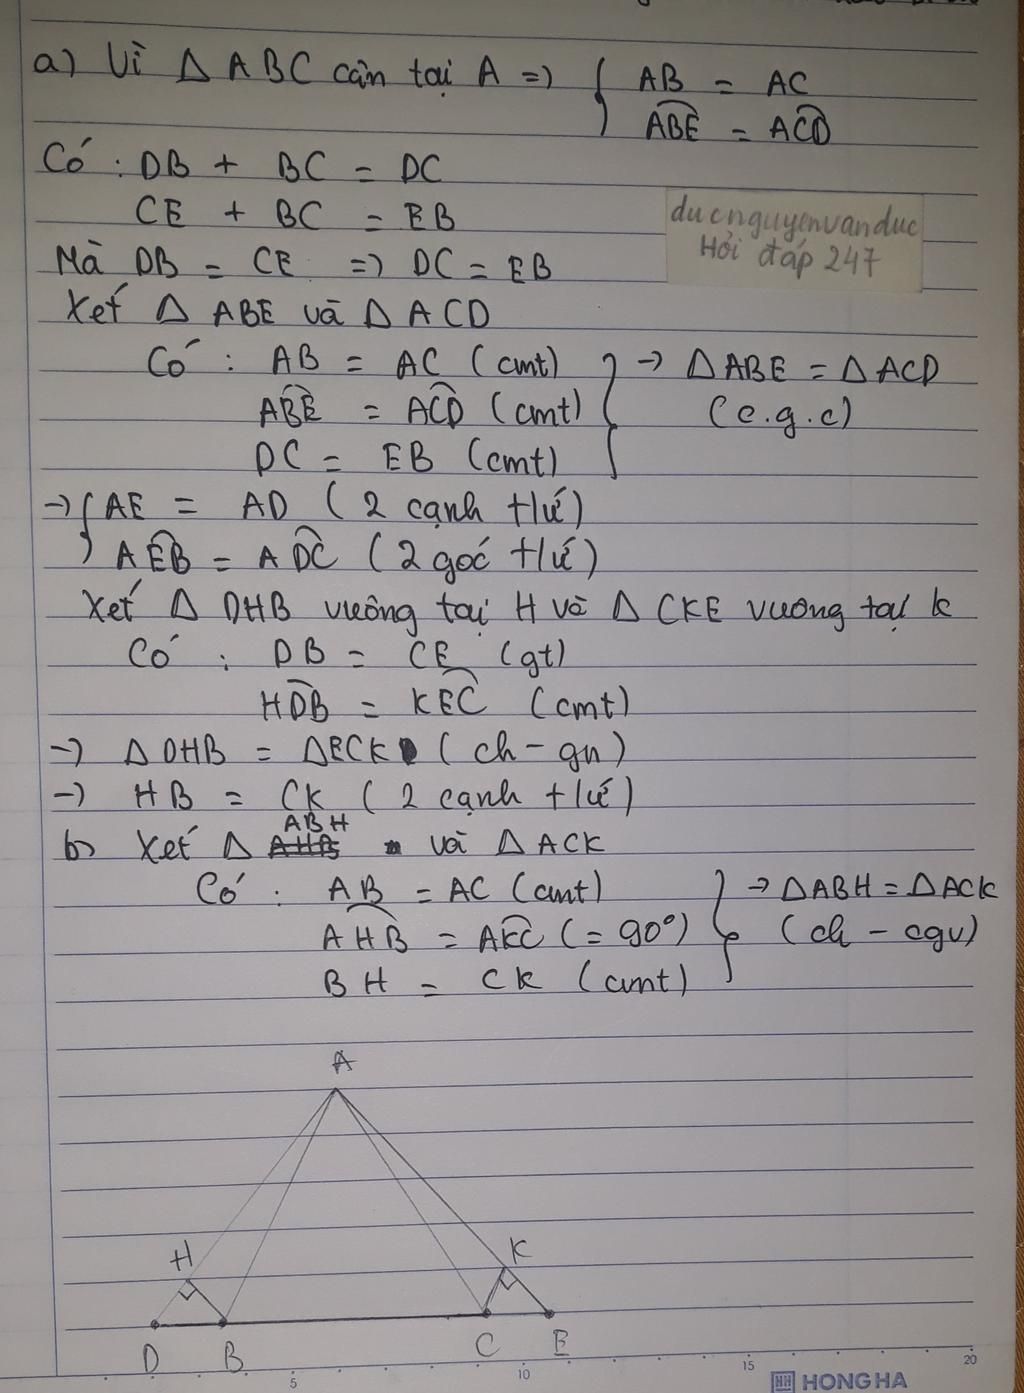 a) Vì Δ ABC cân tại A => { AB = AC
ABE = ACD
Có : DB + BC = DC
CE + BC = EB
Mà DB = CE => DC = EB
ducnguyenvanduc
Hỏi đáp 247
Xét Δ ABE và Δ ACD
Có : AB = AC (cmt) } → Δ ABE = Δ ACD
ABE = ACD (cmt) (c.g.c)
DC = EB (cmt)
→ { AE = AD ( 2 cạnh t/ứ )
AEB = ADC ( 2 góc t/ứ )
Xét Δ DHB vuông tại H và Δ CKE vuông tại K
Có : DB = CE (gt)
HDB = KEC (cmt)
→ Δ DHB = Δ ECK ( ch - gn )
→ HB = CK ( 2 cạnh t/ứ )
b) Xét Δ ABH và Δ ACK
Có : AB = AC (cmt) } → Δ ABH = Δ ACK
AHB = AKC (= 90°) (ch - cgv)
BH = CK (cmt)
A
H
K
D B C E
5 10 15 20
HH HONG HA